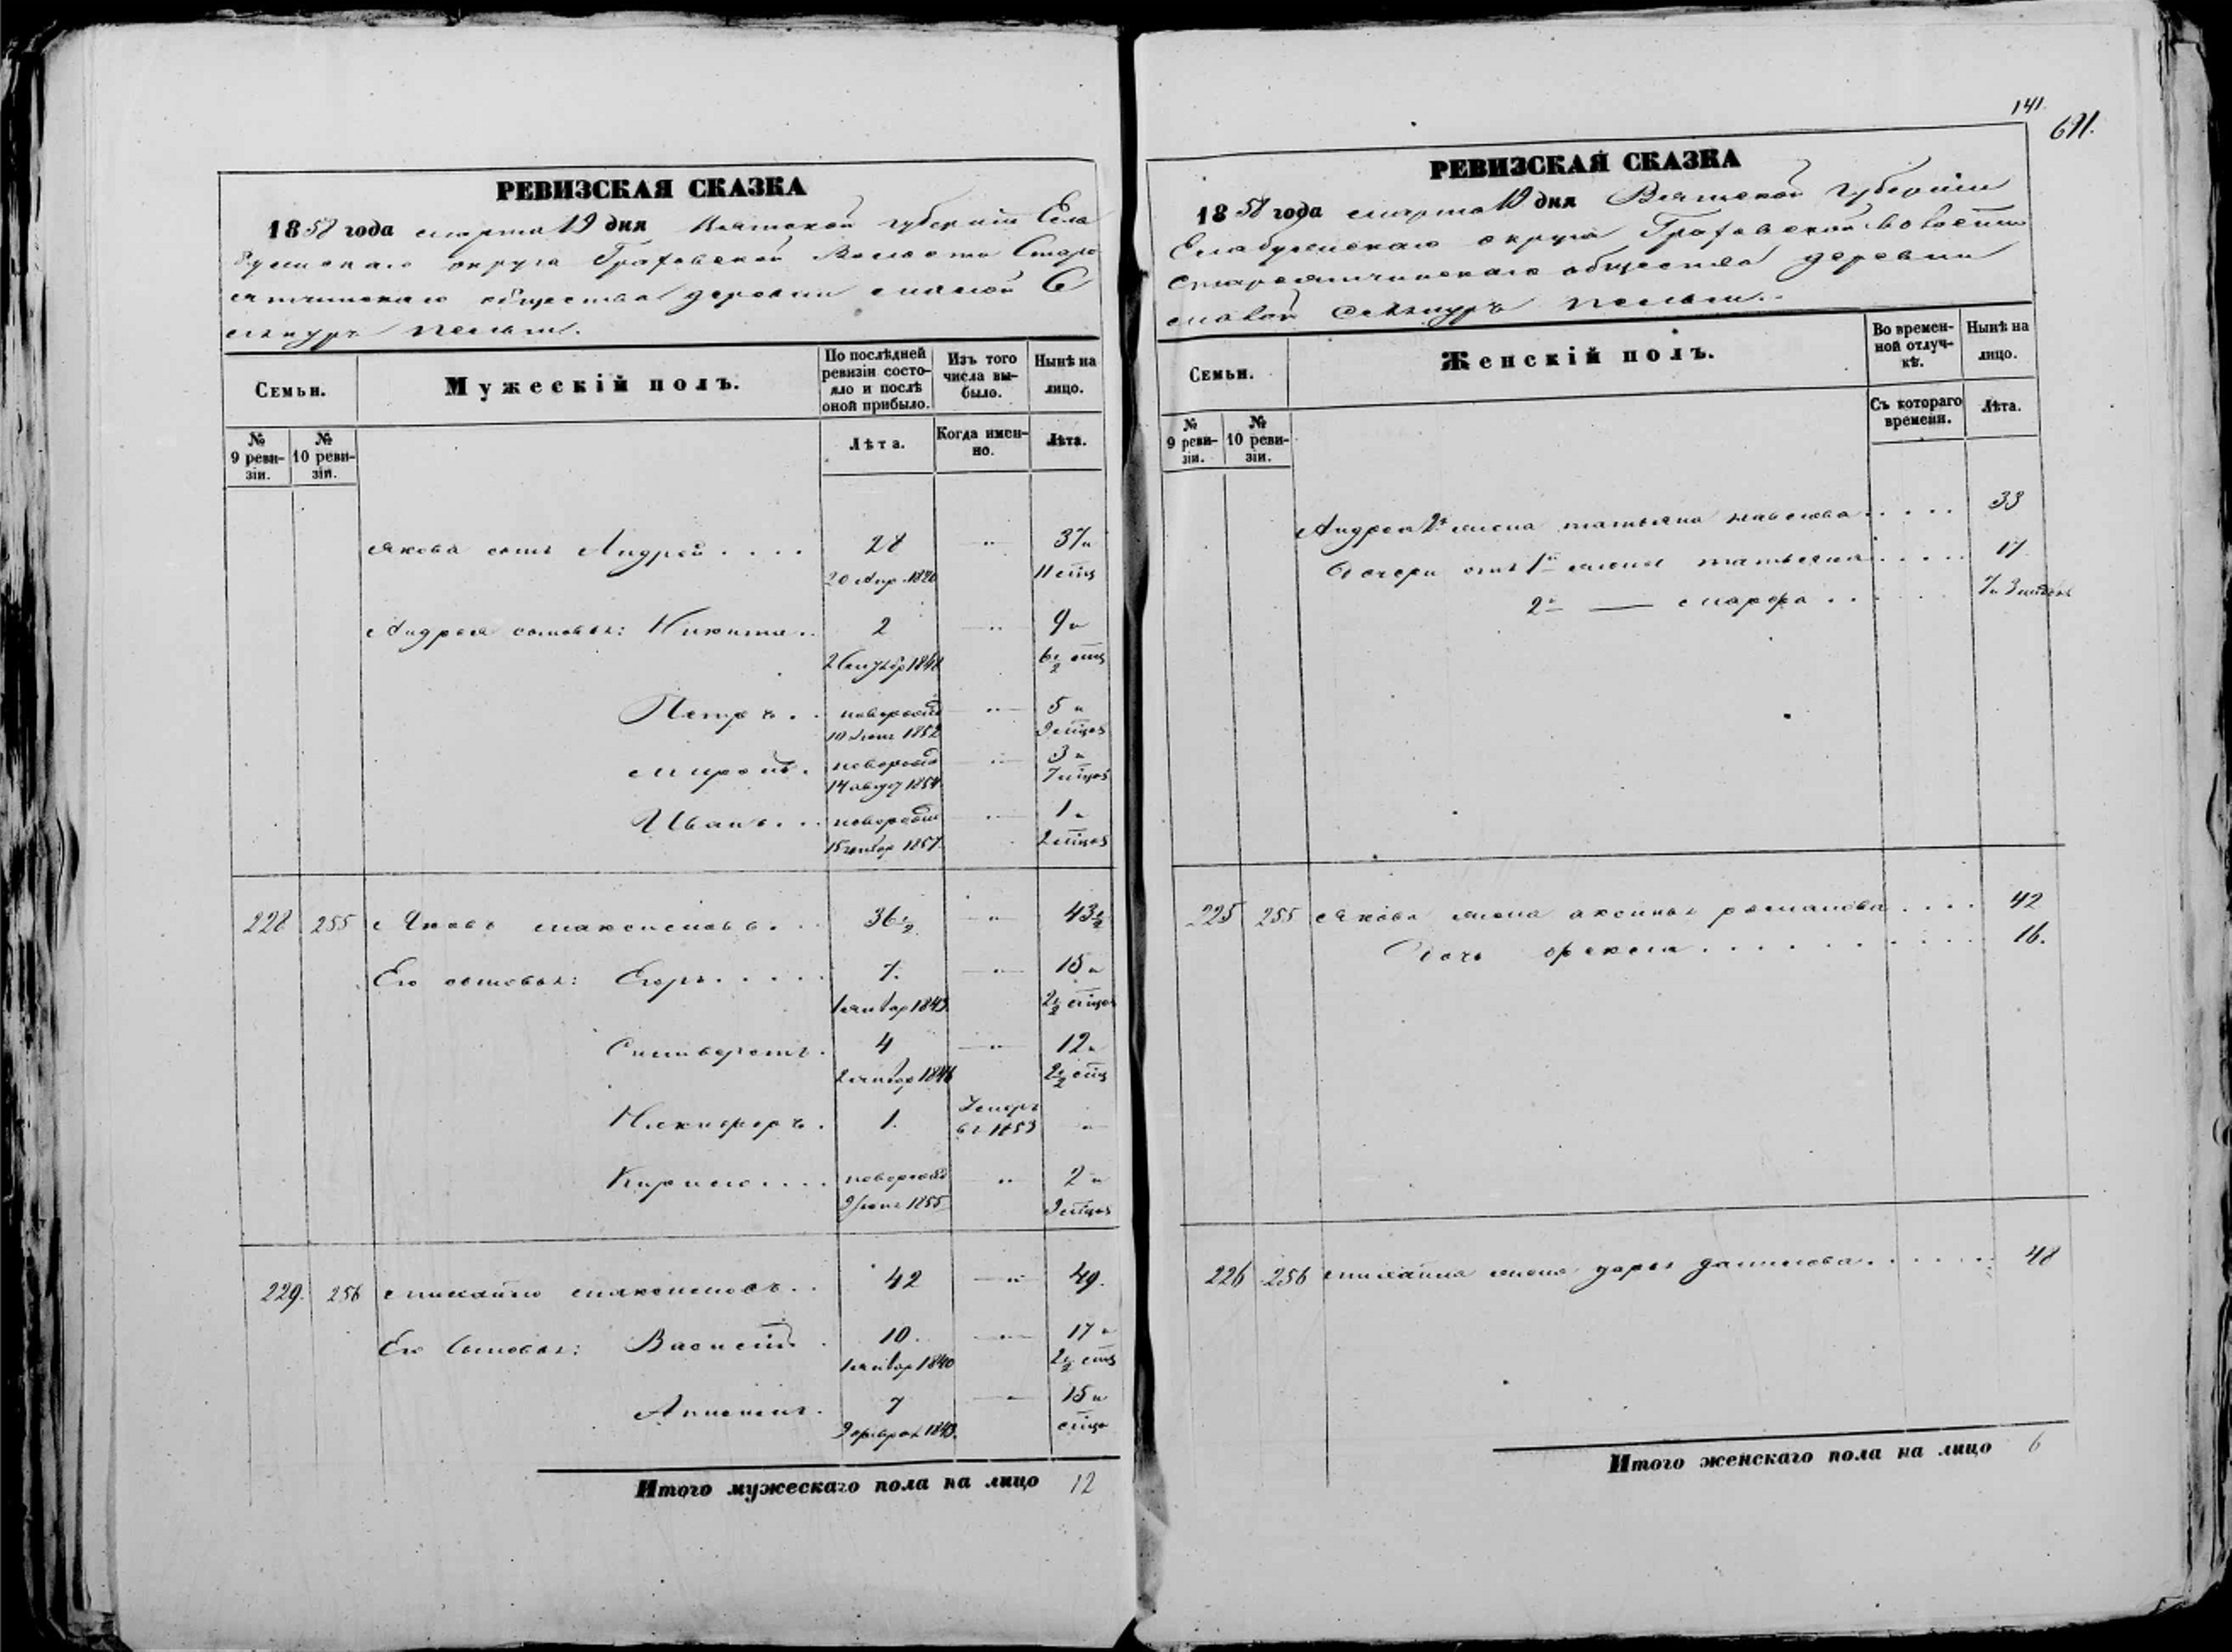 141.
691.
РЕВИЗСКАЯ СКАЗКА
1858 года марта 19 дня Вятской губерніи Ела
бужскаго округа Граховской Волости Старо
ятчинскаго общества деревни малой С
ельтуръ Пельги.
Семьи.
Мужескій полъ.
По послѣдней ревизіи состояло и послѣ оной прибыло.
Изъ того числа выбыло.
Нынѣ на лицо.
№ 9 ревизіи.
№ 10 ревизіи.
Лѣта.
Когда именно.
Лѣта.
Якова сынъ Андрей . . . . 28 " 37 и
20 Апр. 1820 11 мц
Андрея сыновья: Никита . . 2 " 9 и
2 Сентябр 1848 6½ мц
Петръ . . новорожд " 5 и
10 Іюня 1852 9 мцов
Миронъ . новорожд " 3 и
14 август 1854 7 мцов
Иванъ . . . новорожд " 1 и
15 январ 1857 2 мцов
228 255 Яковъ Максимовъ . . . 36½ " 43½
Его сыновья: Егоръ . . . . . 7. " 15 и
1 январ 1843 2½ мцов
Сильверстъ . 4 " 12 и
2 январ 1846 2½ мц
Никифоръ . 1. Умеръ "
въ 1853
Кирило . . . . новорожд " 2 и
9 Іюня 1855 9 мцов
229. 256 Михайло Максимовъ . . 42 " 49.
Его Сыновья: Василій . 10. " 17 и
1 январ 1840 2½ мц
7 " 15 и
9 феврал 1843. мцъ
Итого мужескаго пола на лицо 12
РЕВИЗСКАЯ СКАЗКА
1858 года марта 19 дня Вятской Губерніи
Елабужскаго округа Граховской волости
Староятчинскаго общества деревни
малой Сельтуръ Пельги.
Семьи.
Женскій полъ.
Во временной отлучкѣ.
Нынѣ на лицо.
№ 9 ревизіи.
№ 10 ревизіи.
Съ котораго времени.
Лѣта.
Андрея 2я жена Татьяна Павлова . . . . . 33
Дочери отъ 1й жены Татьяна . . . . . 17
2й — Марфа . . . . . 7 и 3
225 255 Якова жена Аксинья Романова . . . . 42
Дочь Фекла . . . . . . . . . . 16.
226 256 Михайла жена Дарья Данилова . . . . . . 48
Итого женскаго пола на лицо 6